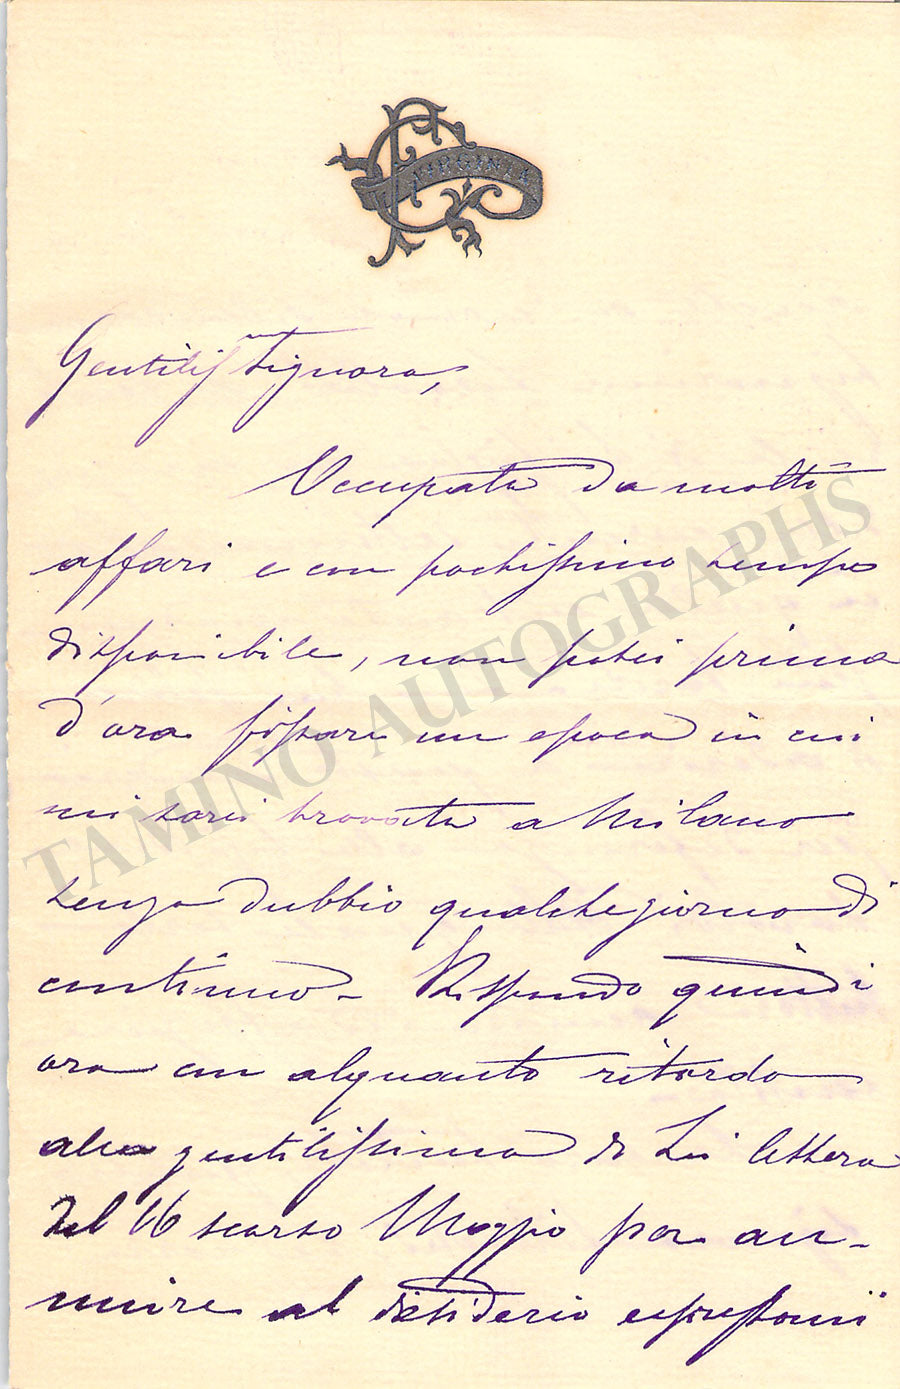 VIRGINIA
Gentiliss Signora,
Occupata da molti
affari e con pochissimo tempo
disponibile, non potei prima
d'ora fissare un epoca in cui
mi sarei trovata a Milano
senza dubbio qualche giorno di
continuo - Rispondo quindi
ora con alquanto ritardo
alla gentilissima di Lei lettera
del 16 scorso Maggio per an-
nuire al desiderio espressomi
TAMINO AUTOGRAPHS